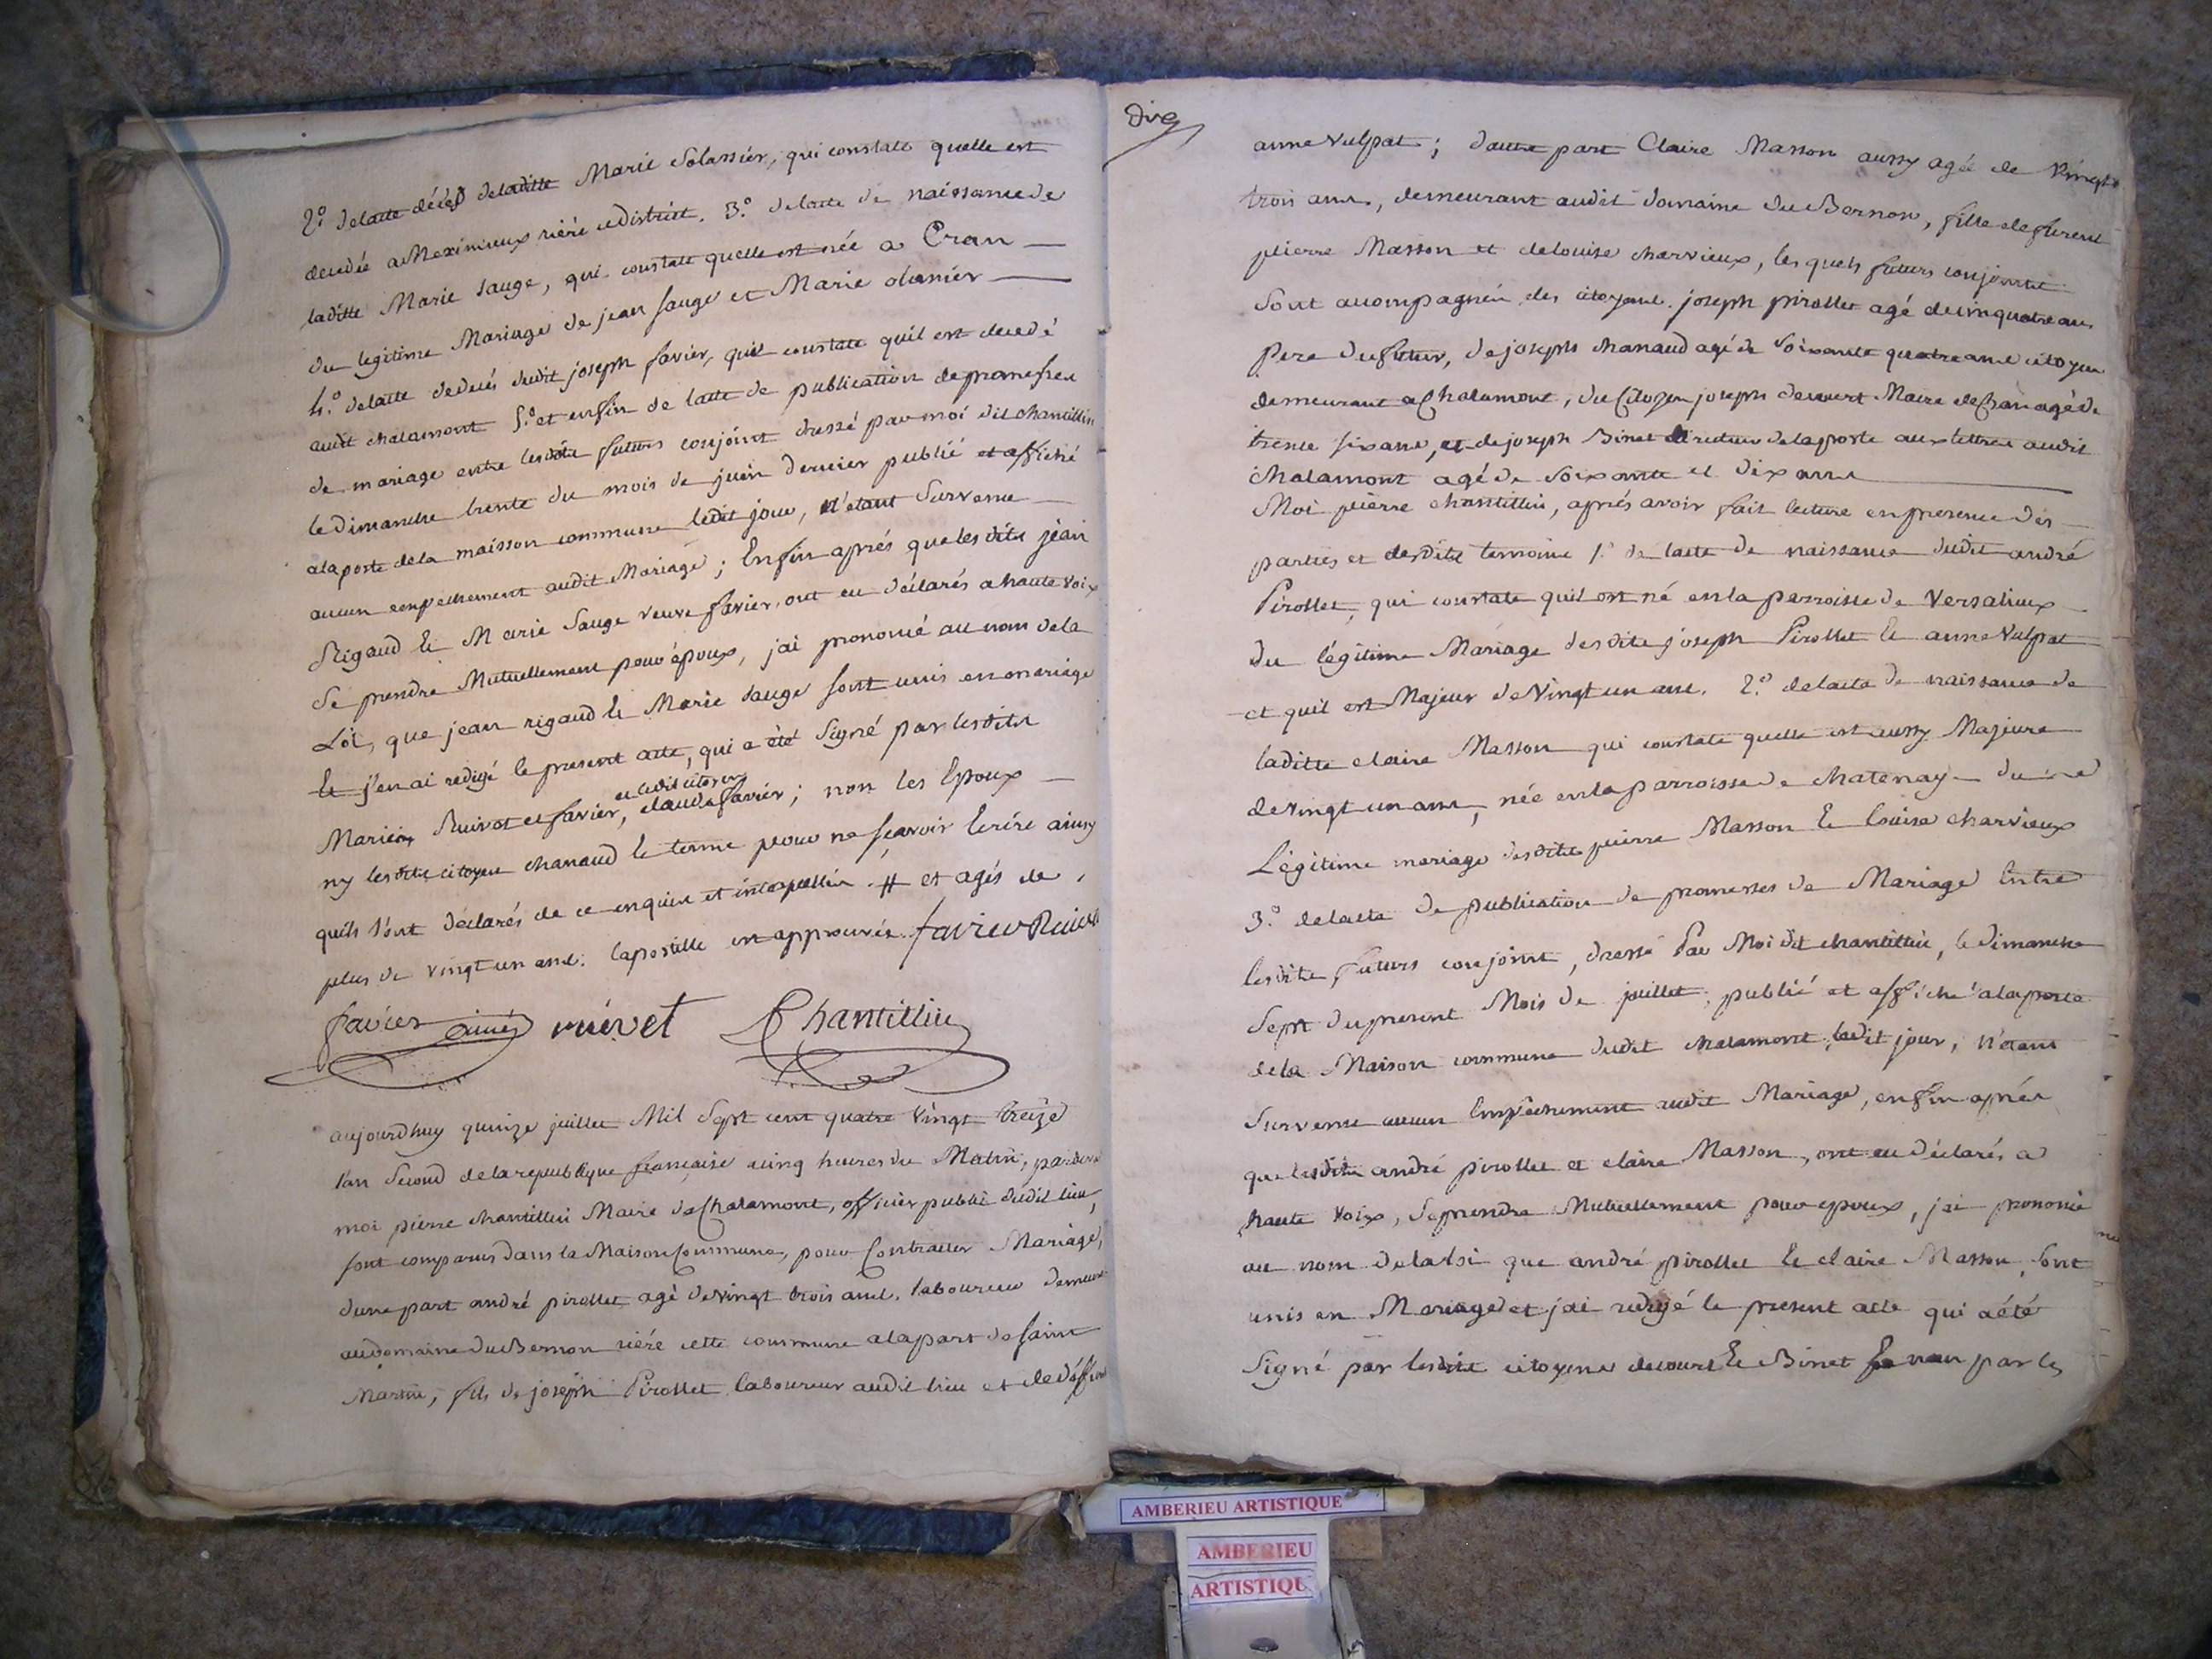 2.º delacte décès deladitte Marie Solassier, qui constate quelle est
decedée a Meximieux riére cedistrict. 3.º delacte de naissance de
laditte Marie Sauge, qui constate quelle est née a Cran
du legitime Mariage de jean Sauge et Marie
4.º delacte dedecés dudit joseph favier, quil constate quil est decedé
audit chalamont 5.º et enfin de lacte de publication depromesses
de mariage entre lesdits futurs conjoint dressé par moi dit chantillin
le Dimanche trente du mois de juin dernier publié et affiché
alaporte dela maisson commune ledit jour, n'etant Survenu
aucun empechement audit Mariage; Enfin aprés que lesdits jean
Rigaud Et Marie Sauge veuve favier, ont eu déclarés a haute voix
Se prendre Mutuellement pour époux, jai prononcé au nom dela
Loi, que jean rigaud Et Marie Sauge sont unis en mariage
Et j'en ai redigé le present acte, qui a été Signé par lesdits
et ledit citoyen
Ruivet et favier, claude favier; non les Epoux
ny lesdits citoyen chanaud Et terme pour ne sçavoir Ecrire ainsy
quils l'ont déclarés de ce enquis et interpellés. # et agés de
plus de vingt un ans. lapostille est approuvée. favier Ruivet
favier ainé ruivet Chantillin
aujourdhuy quinze juillet Mil Sept cent quatre Vingt treize
lan Second delarepublique française cinq heures du Matin, pardevant
moi pierre chantillin Maire de Chalamont, officier public dudit lieu,
sont comparus dans la Maison Commune, pour Contracter Mariage,
dune part andré pirollet agé devingt trois ans, laboureur demeurant
audomaine du Bernon riére cette commune alapart de saint
Martin, fils de joseph Pirollet laboureur audit lieu et de deffunte
dix
anne Vulpat; dautre part Claire Masson aussy agée de Vingt
trois ans, demeurant audit domaine du Bernon, fille defurent
pierre Masson et delouise charvieux, les quels futurs conjoints
Sont accompagnés des citoyens joseph pirollet agé decinquante ans
Pere dufutur, de joseph chanaud agé de Soixante quatre ans citoyen
demeurant a Chalamont, du Citoyen joseph decourt Maire de agé de
trente six ans, et de joseph Binet directeur delaposte aux lettres audit
chalamont agé de Soixante et dix ans
Moi pierre chantillin, aprés avoir fait lecture en presence des
parties et desdits temoins 1.º de lacte de naissance dudit andré
Pirollet, qui constate quil est né en la parroisse de Versalieux
du légitime Mariage desdits joseph Pirollet Et anne Vulpat
et quil est Majeur de Vingt un ans. 2.º delacte de naissance de
laditte claire Masson qui constate quelle est aussy Majeure
devingt un ans, née en la parroisse de chatenay du
Légitime mariage desdits pierre Masson Et Louise charvieux
3.º delacte de publication de promesses de Mariage Entre
lesdits futurs conjoint, dressé Par Moi dit chantillin, le Dimanche
Sept du present Mois de juillet, publié et affiché alaporte
dela Maison commune dudit chalamont ledit jour, n'etant
Survenu aucun Empêchement audit Mariage, enfin aprés
que lesdits andré pirollet et claire Masson, ont eu déclarés a
haute Voix, Seprendre Mutuellement pour epoux, jai prononcé
au nom delaloi que andré pirollet Et claire Masson, sont
unis en Mariage et jai redigé le present acte qui aété
Signé par lesdits citoyens decourt Et Binet non par les
AMBERIEU ARTISTIQUE
AMBERIEU
ARTISTIQU